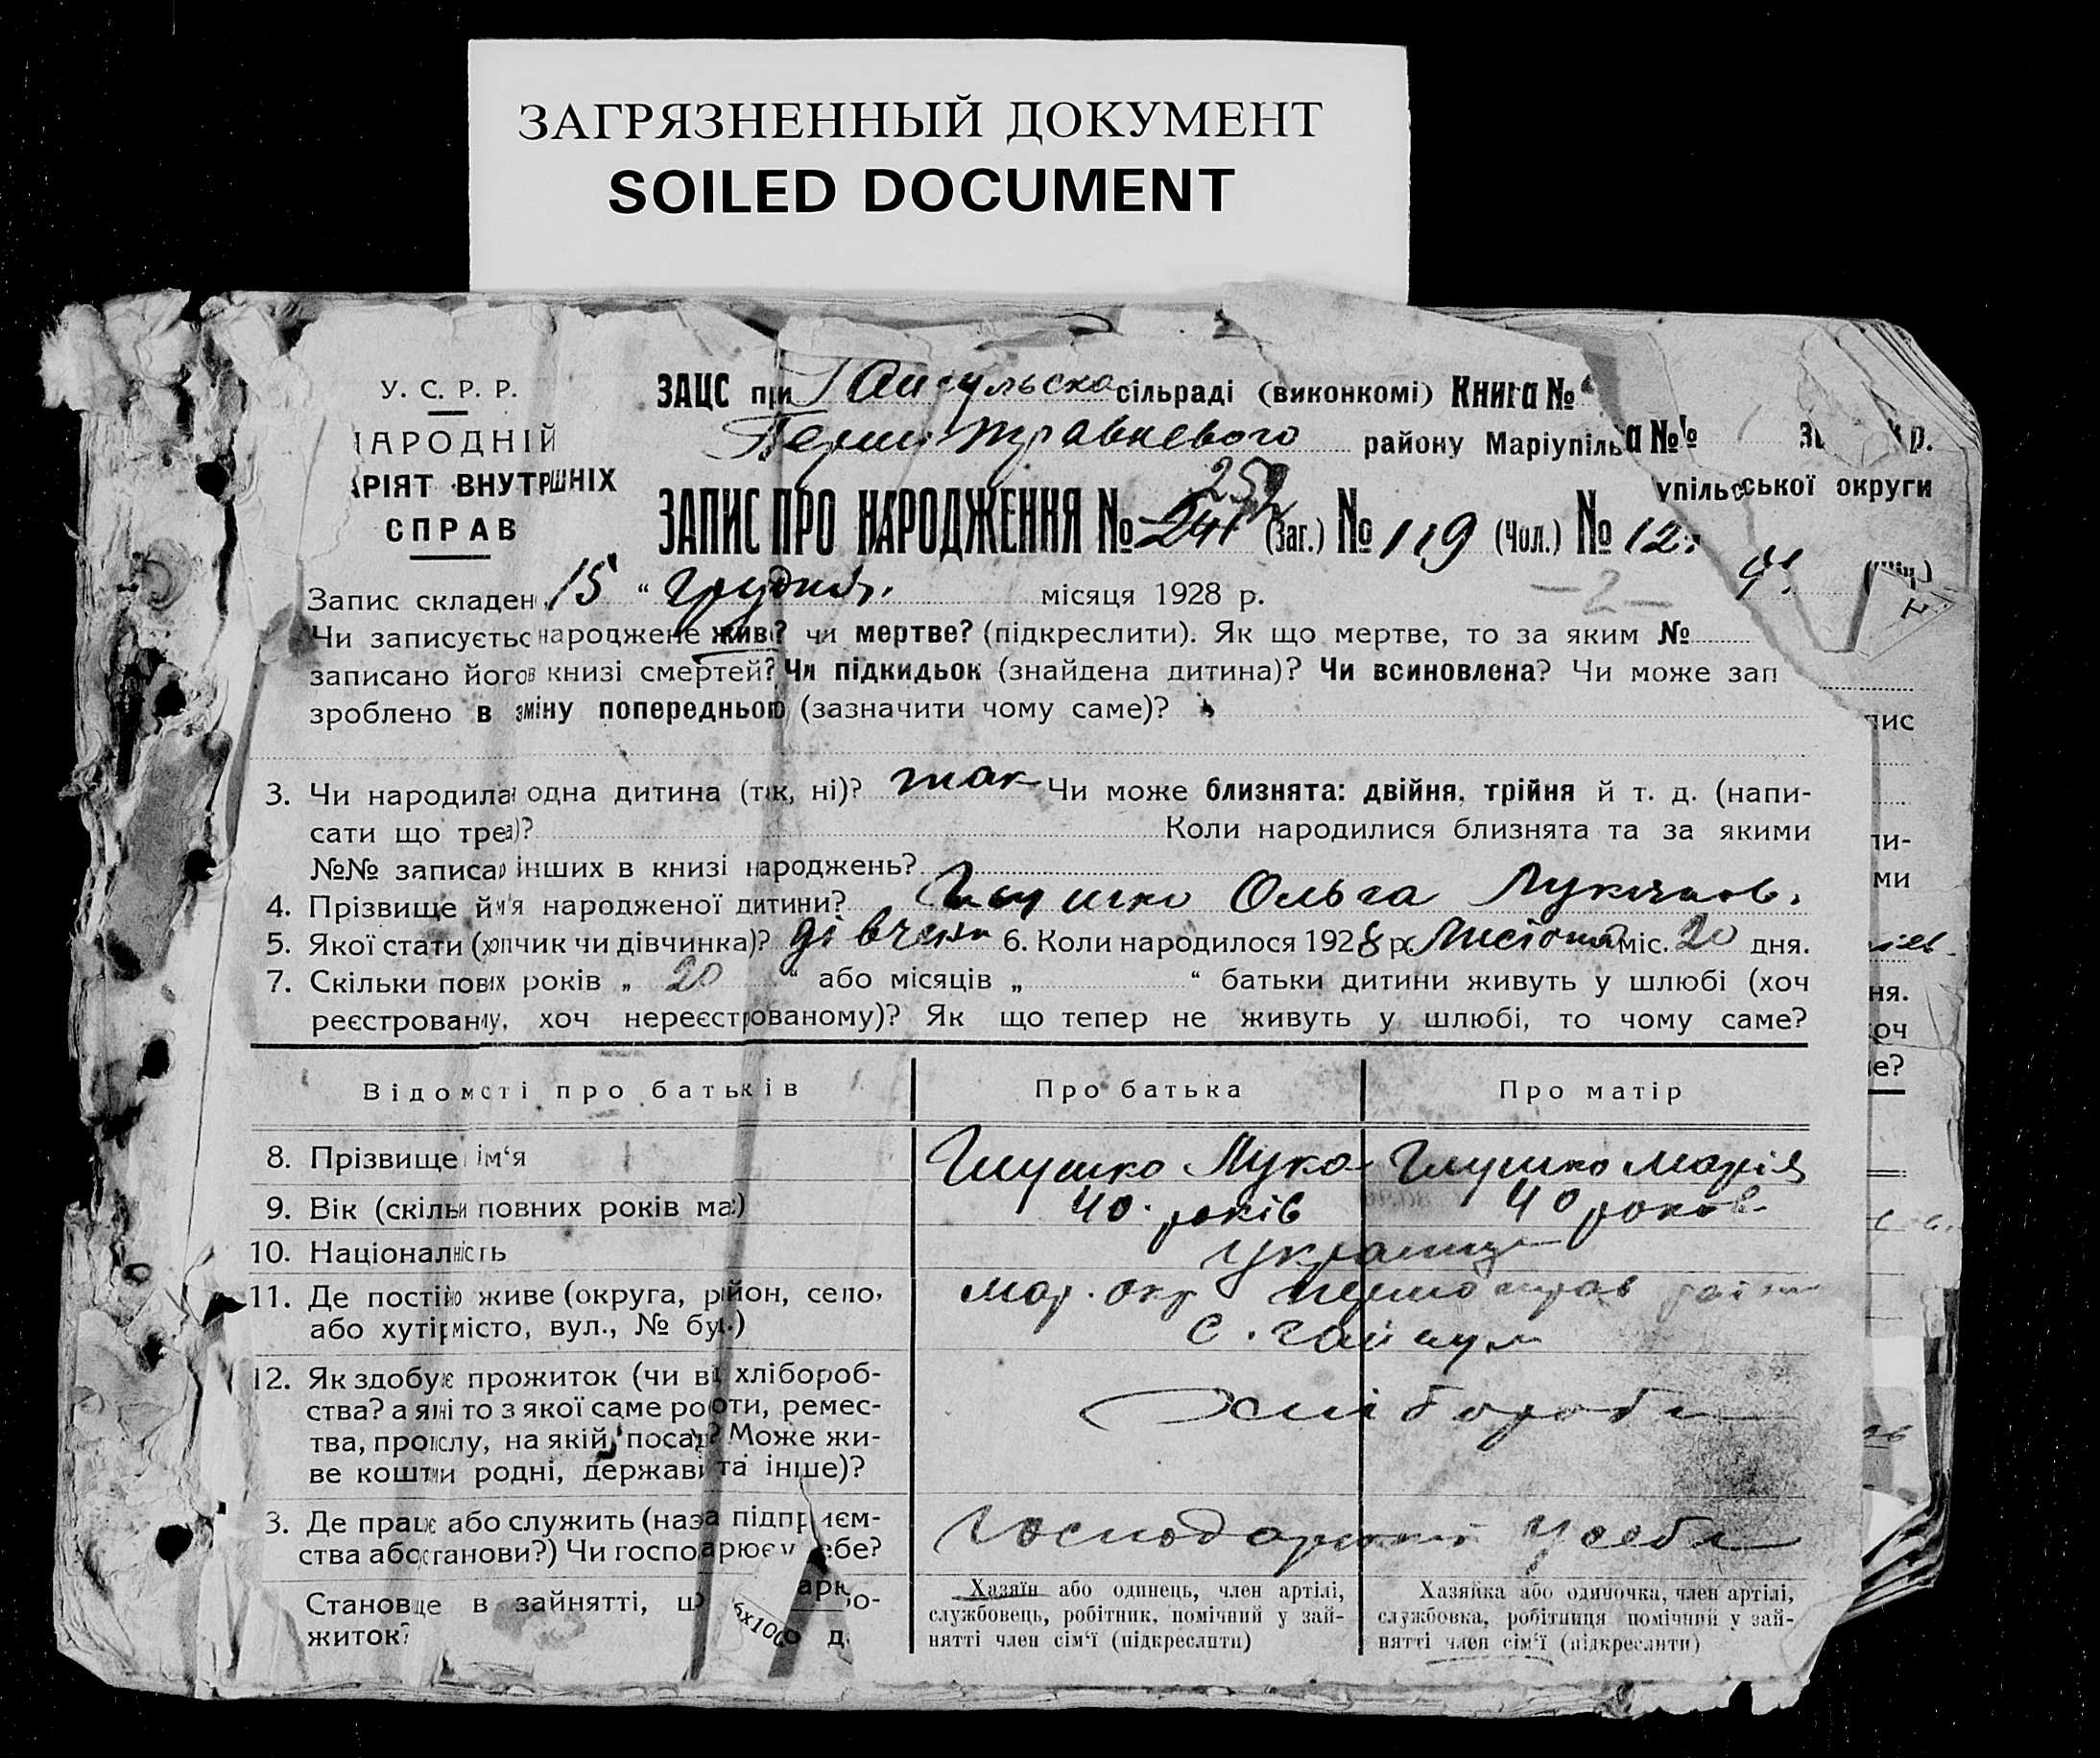 ЗАГРЯЗНЕННЫЙ ДОКУМЕНТ
SOILED DOCUMENT
У. С. Р. Р.
АРОДНІЙ
АРІЯТ ВНУТРІШНІХ
СПРАВ
ЗАЦС при сільраді (виконкомі) Книга №
района №
Першотравневого району Маріупіль
упільської округи
ЗАПИС ПРО НАРОДЖЕННЯ № 241 (Заг.) № 119 (Чол.) № 12
Запис складен 15 " грудня місяця 1928 р.
— 2 —
Чи записується народжене живе? чи мертве? (підкреслити). Як що мертве, то за яким №
записано його в книзі смертей? Чи підкидьок (знайдена дитина)? Чи всиновлена? Чи може зап
зроблено в зміну попередньою (зазначити чому саме)?
3. Чи народилас одна дитина (так, ні)? так Чи може близнята: двійня, трійня й т. д. (напи-
сати що треа)? Коли народилися близнята та за якими
№№ записар інших в книзі народжень?
4. Прізвище й им'я народженої дитини? Глушко Ольга
5. Якої стати (хлопчик чи дівчинка)? дівчин 6. Коли народилося 1928 р. міс. 20 дня.
7. Скільки повних років „ 20 “ або місяців „ “ батьки дитини живуть у шлюбі (хоч
реєстрованму, хоч нереєстрованому)? Як що тепер не живуть у шлюбі, то чому саме?
Відомості про батьків Про батька Про матір
8. Прізвище ім‘я Глушко Лука Глушко Марія
9. Вік (скільки повних років має) 40. років 40 років
10. Національність Українці
11. Де постійно живе (округа, район, село, Мар. окр
або хутір місто, вул., № буд.) с.
12. Як здобуває прожиток (чи від хлібороб- Хлібороби
ства? а яні то з якої саме роботи, ремес-
тва, прослу, на якій посаді? Може жи-
ве коштами родні, держави та інше)?
3. Де працює або служить (назва підприєм-
ства або установи?) Чи господарює у себе? у себе
Становище в зайнятті, що
житок?
Хазяїн або одинець, член артілі,
службовець, робітник, помічний у зай-
нятті член сім‘ї (підкреслити)
Хазяйка або одиночка, член артілі,
службовка, робітниця помічний у зай-
нятті член сім‘ї (підкреслити)